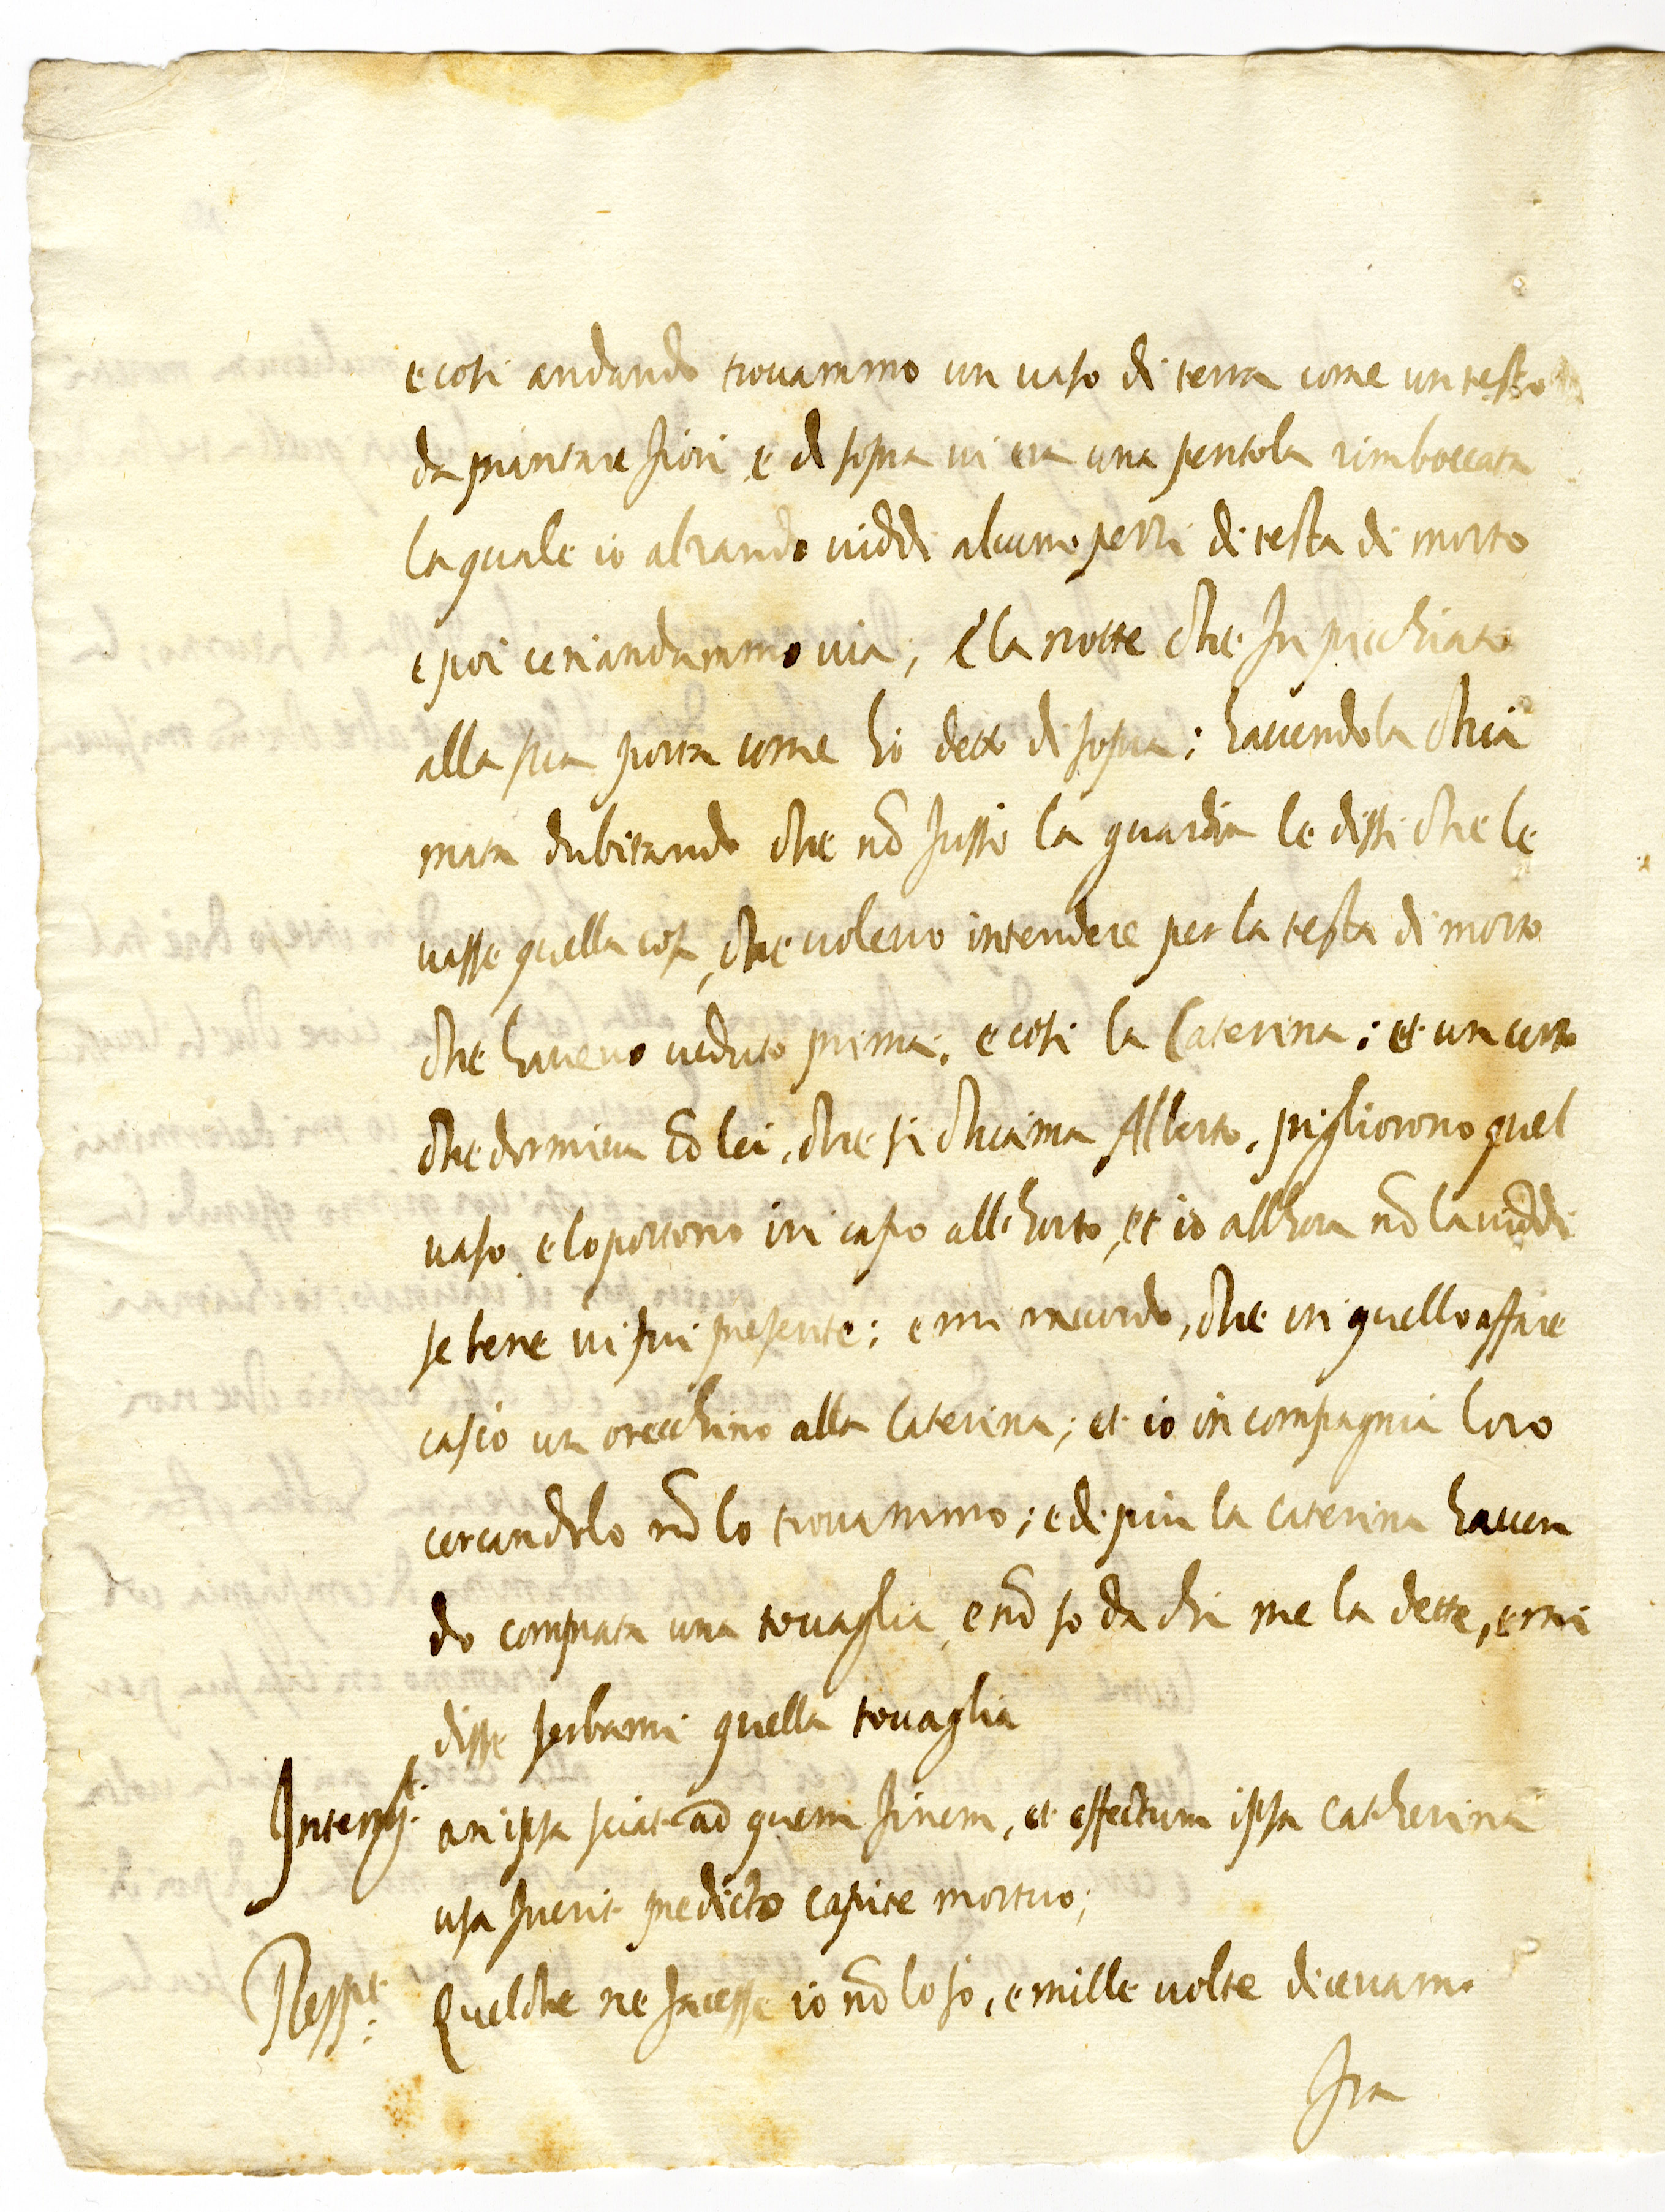 e così andando trovammo un vaso di terra come un testo
da piantare fiori e di sopra vi era una pentola rimboccata
la quale io alzando viddi alcuni pezzi di testa di morto
e poi ce ne andammo via, e la notte che fu picchiato
alla sua porta come hò detto di sopra; havendola chia
mata dubitando che nõ fussi la guardia le dissi che le
vasse quella cosa, che volevo intendere per la testa di morto
che havevo veduto prima, e così la Caterina; et un certo
che dormiva cõ lei, che si chiama Alberto, pigliorono quel
vaso e lo portorno in capo all'horto, et io allhora nõ la viddi
se bene vi fui presente; e mi raccordo, che in quello affare
cascò un orecchino alla Caterina; et io in compagnia loro
cercandolo nõ lo trovammo; e di più la Caterina haven
do comprata una tovaglia e nõ so da chi me la dette, e mi
disse serbami quella tovaglia
Interrog.t an ipsa sciat ad quem finem, et effectum ipsa Catherina
usa fuerit predicto capite mortuo;
Resp.t Quel che ne facesse io nõ lo so, e mille volte dicevamo
fra